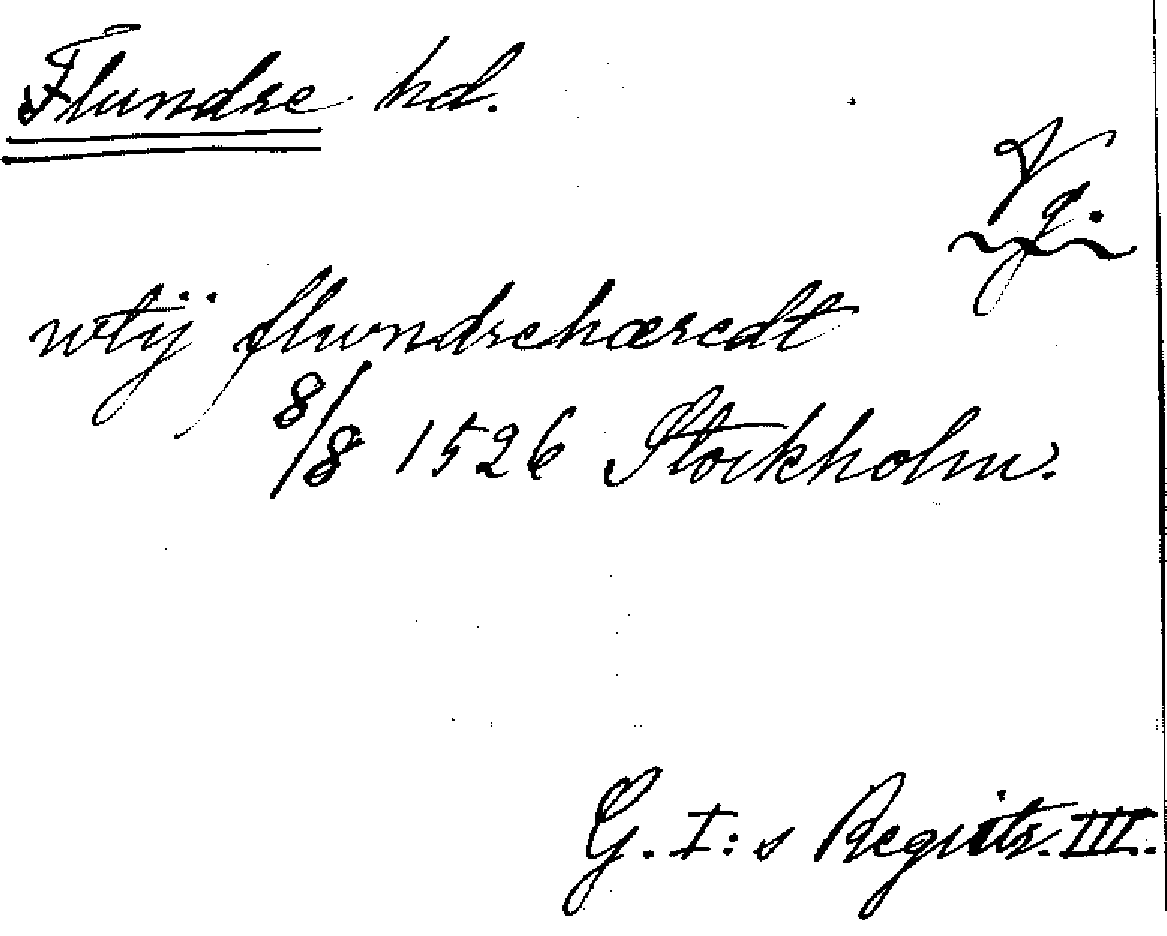 Flundre hd.
Vg.
wtij flundrehæredt
8/8 1526 Stockholm.
G. I:s Registr. III.